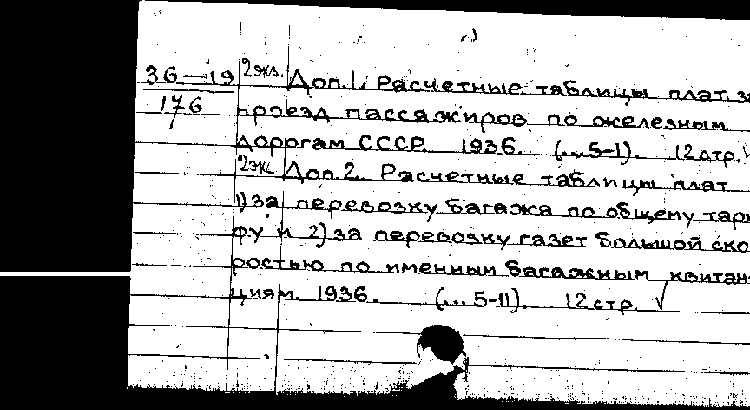 36—19 2экз. Доп.1. Расчетные таблицы плат за
176 проезд пассажиров по железным
дорогам СССР. 1936. (... 5-1). 12 стр. √
2экз. Доп.2. Расчетные таблицы плат
1) за перевозку багажа по общему тари
фу и 2) за перевозку газет большой ско
ростью по именным багажным квитан
циям. 1936. (... 5-11). 12 стр. √